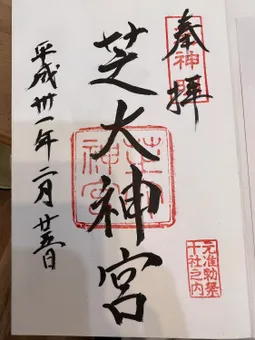 奉拝
芝大神宮
平成卅一年二月廿五日
元准勅祭
十社之内